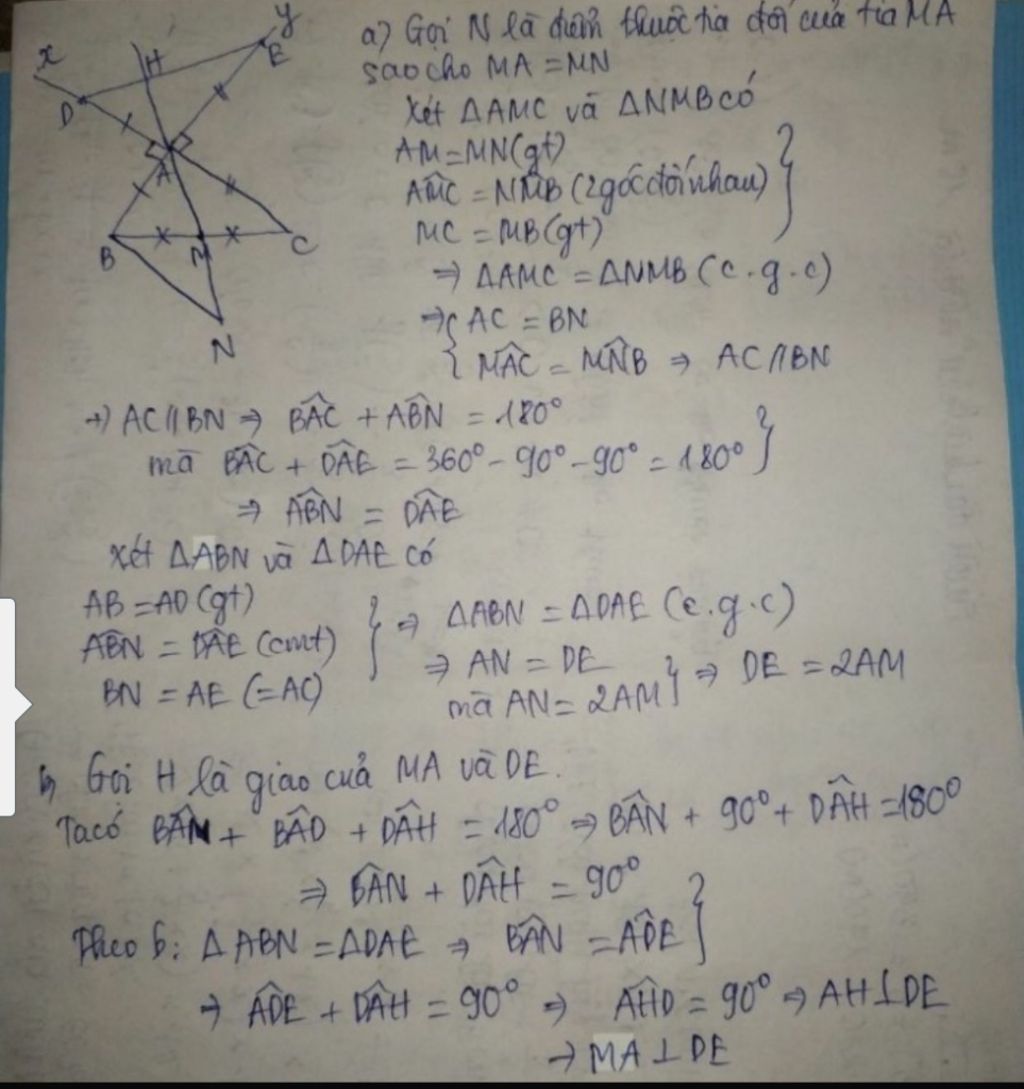 x
y
H
E
D
A
B
M
C
N
a) Gọi N là điểm thuộc tia đối của tia MA
sao cho MA = MN
Xét ΔAMC và ΔNMB có
AM = MN (gt)
AM̂C = NM̂B (2 góc đối nhau)
MC = MB (gt)
⇒ ΔAMC = ΔNMB (c.g.c)
⇒ { AC = BN
{ MÂC = MN̂B ⇒ AC // BN
+) AC // BN ⇒ BÂC + AB̂N = 180°
mà BÂC + DÂE = 360° - 90° - 90° = 180° }
⇒ AB̂N = DÂE
Xét ΔABN và ΔDAE có
AB = AD (gt)
AB̂N = DÂE (cmt) } ⇒ ΔABN = ΔDAE (c.g.c)
BN = AE (= AC)
⇒ AN = DE
mà AN = 2AM } ⇒ DE = 2AM
b, Gọi H là giao của MA và DE.
Ta có BÂN + BÂD + DÂH = 180° ⇒ BÂN + 90° + DÂH = 180°
⇒ BÂN + DÂH = 90°
Theo b: ΔABN = ΔDAE ⇒ BÂN = AD̂E }
⇒ AD̂E + DÂH = 90° ⇒ AĤD = 90° ⇒ AH ⊥ DE
→ MA ⊥ DE